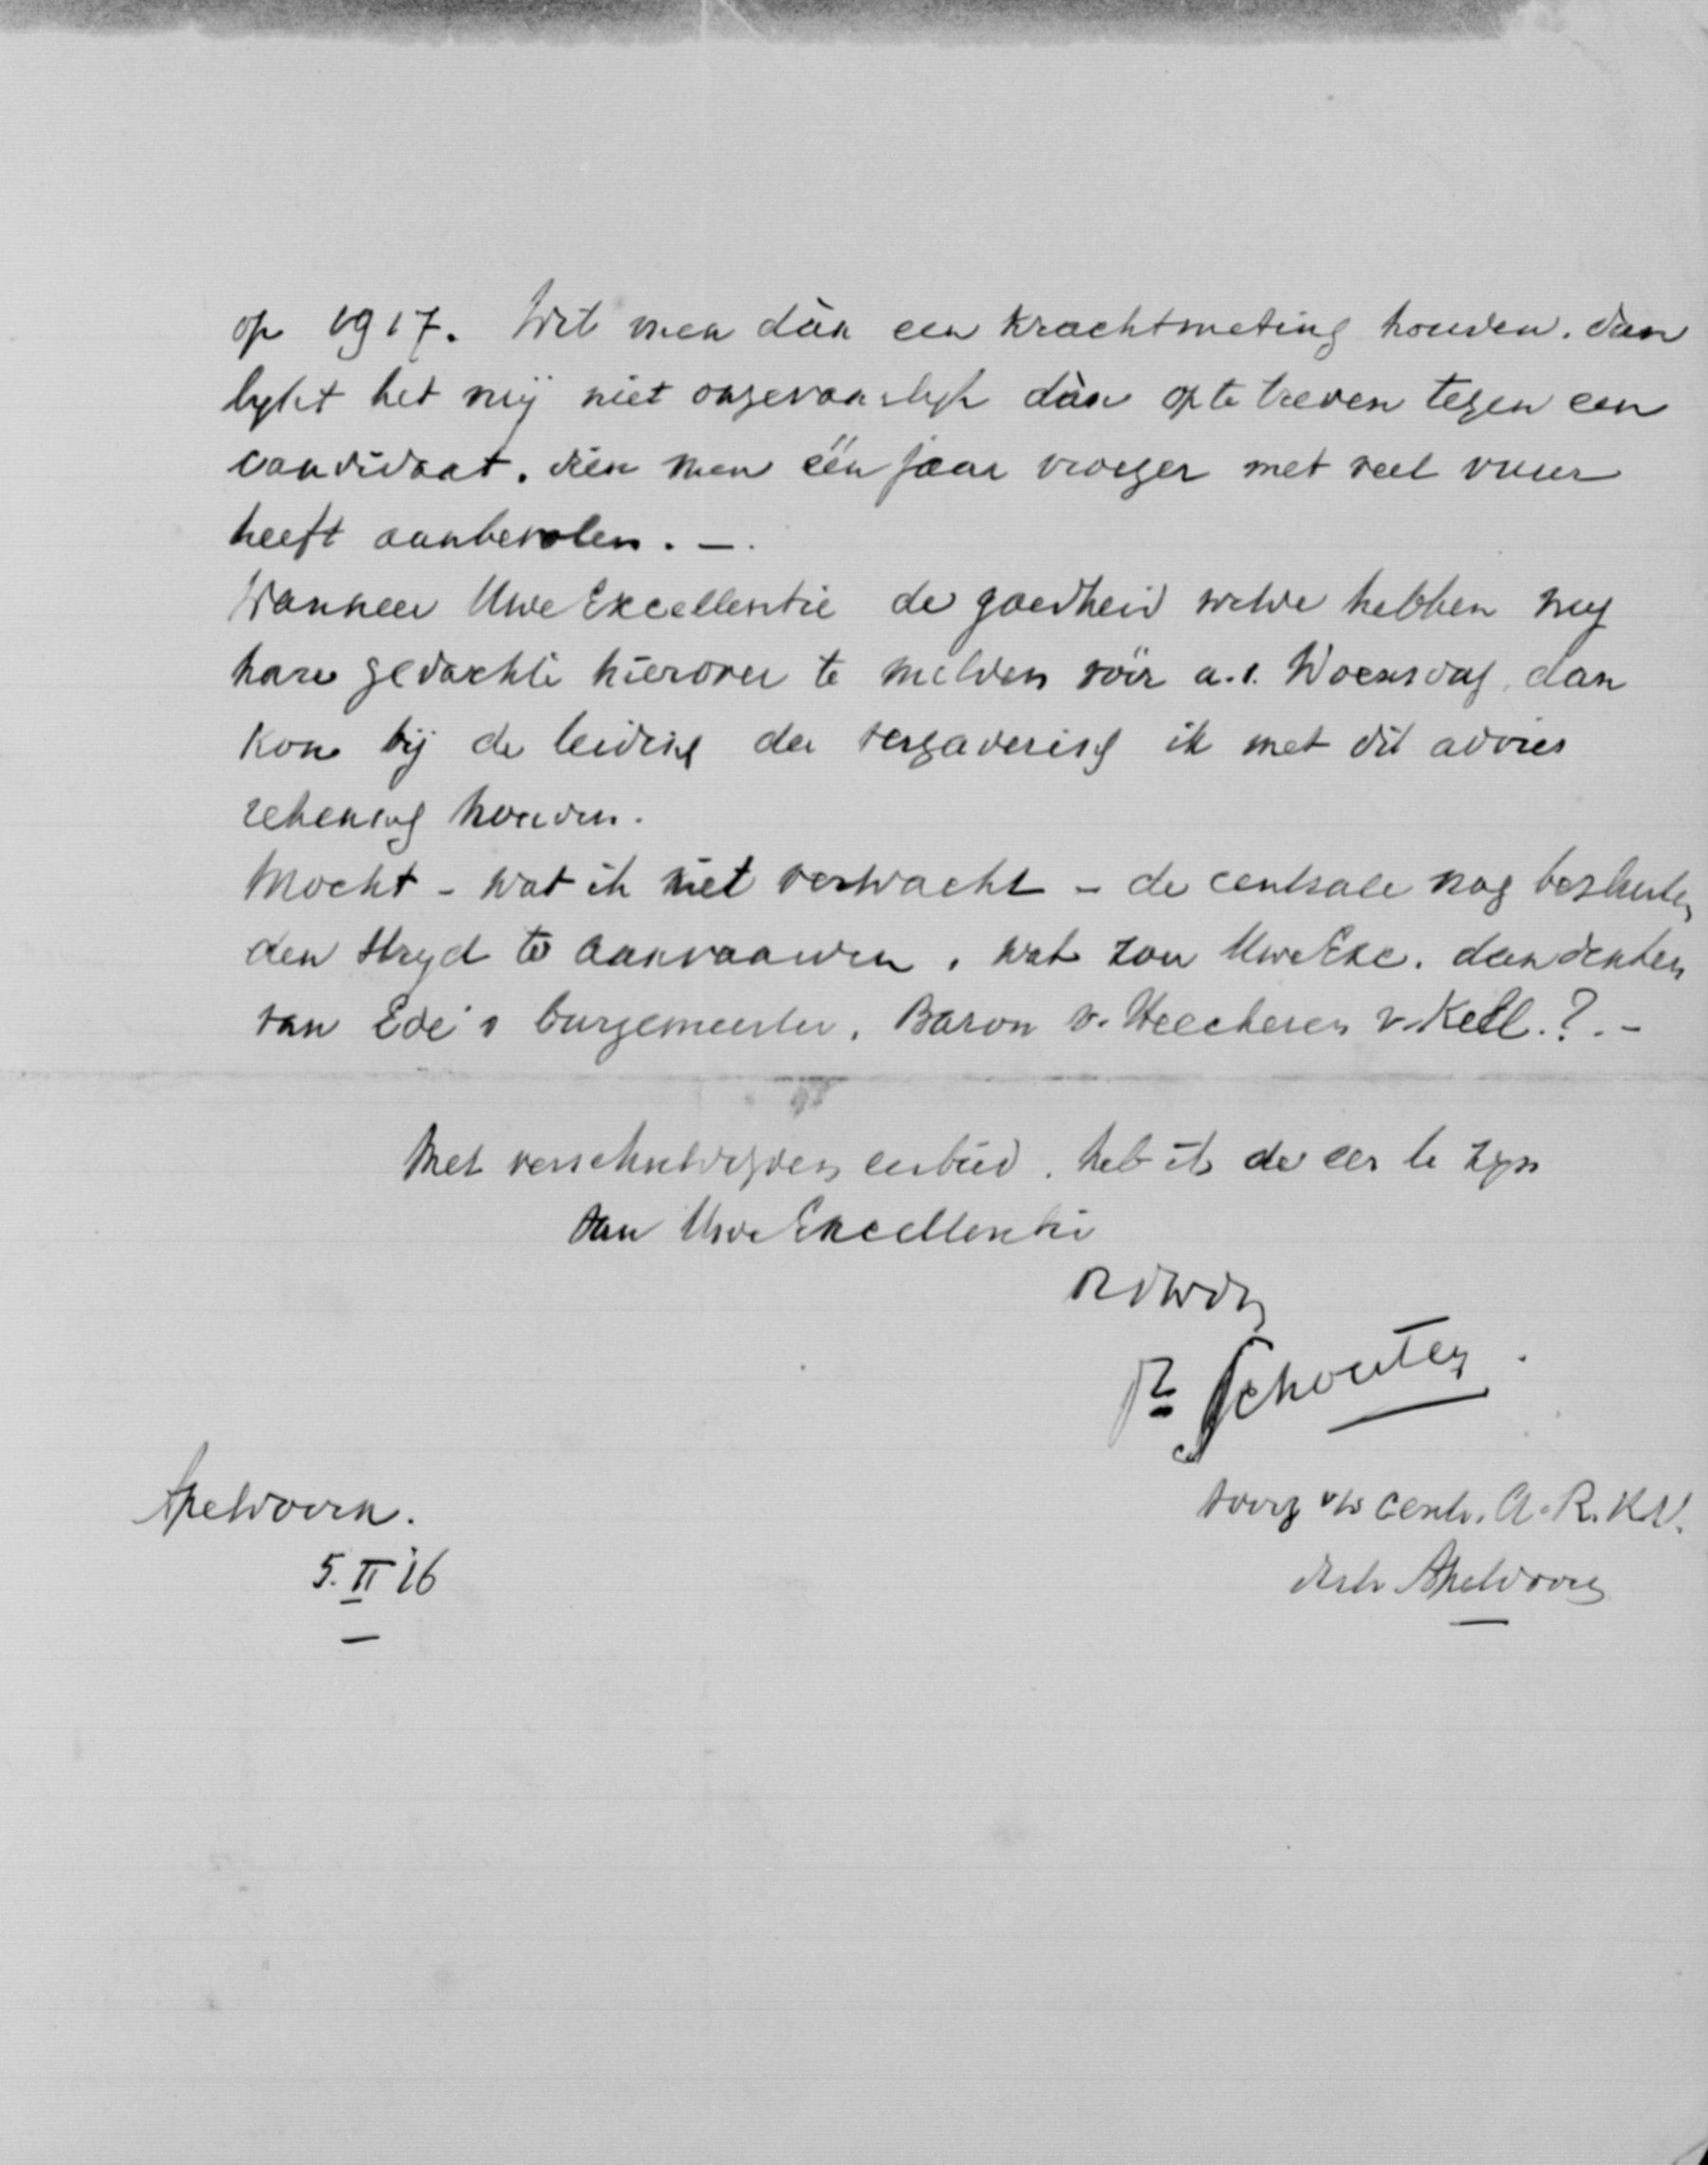 op 1917. Wil men dàn een krachtmeting houden, dan
lykt het mij niet ongevaarlyk dàn op te treden tegen een
candidaat, dien men één jaar vroeger met veel vuur
heeft aanbevolen. —.
Wanneer Uwe Excellentie de goedheid wilde hebben my
hare gedachte hierover te melden vóór a.s. Woensdag, dan
kon bij de leiding der vergadering ik met dit advies
rekening houden.
Mocht - wat ik niet verwacht - de centrale nog besluiten
den stryd te aanvaarden, wat zou Uwe Exc. dan denken
van Ede's burgemeester, Baron v. Heeckeren v. Kell.?. -
Met verschuldigden eerbied, heb ik de eer te zyn
van Uwe Excellentie
Schouten.
voorz v/d centr. A.R. K.V.
distr Apeldoorn
Apeldoorn.
5. II '16